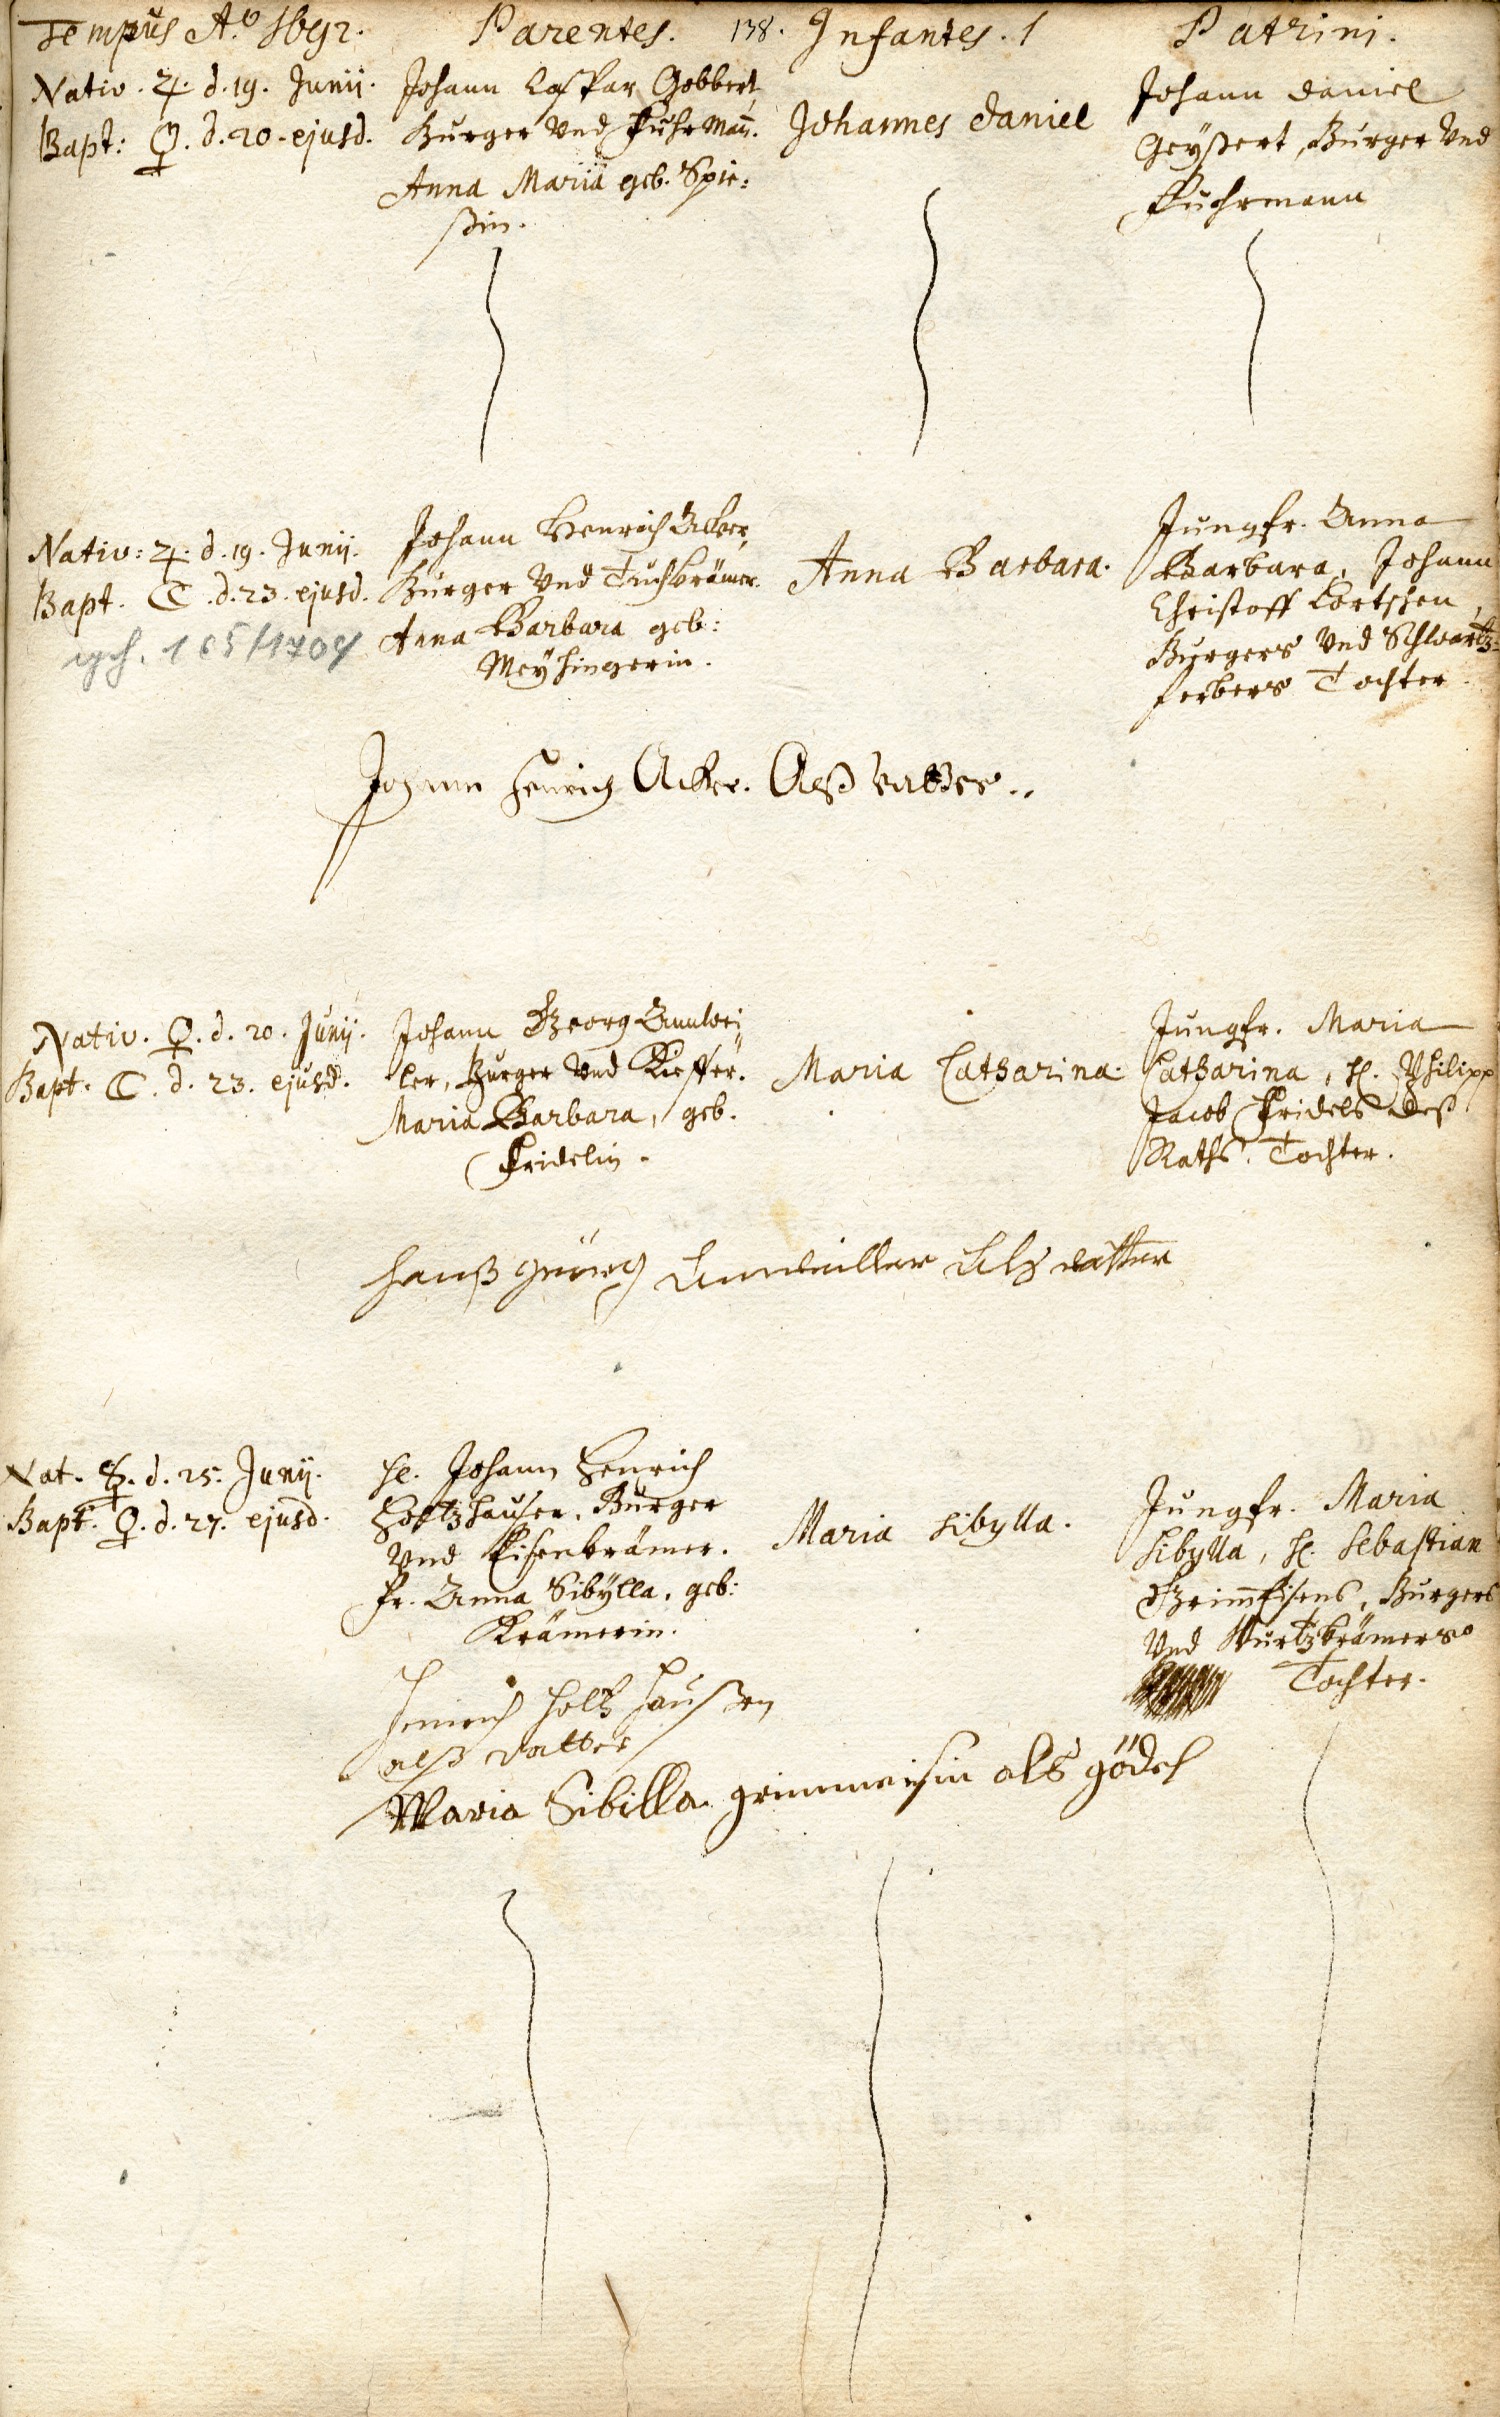 Tempus Aº. 1692. Parentes. 138. Infantes. 1 Patrini.
Nativ. ♃. d. 19. Junii.
Bapt: ♀. d. 20. ejusd.
Johann Caspar Gebbert
Burger Und Fuhrmañ.
Anna Maria geb. Spie-
ßin.
Johannes Daniel
Johann Daniel
Geyßert, Burger Und
Fuhrmann
Nativ: ♃. d. 19. Junij.
Bapt. ☾. d. 23. ejusd.
Johann Henrich Acker,
Burger Und Tuchkrämer.
Anna Barbara geb:
Meyhingerin.
Anna Barbara.
Jungfr. Anna
Barbara, Johann
Christoff Cortschen,
Burgers Und Schwartz-
ferbers Tochter.
Johann Henrich Acker. Alß vatter..
Nativ. ♀. d. 20. Junij.
Bapt. ☾. d. 23. ejusd.
Johann Georg Annwei
ler, Burger Und Kieffer.
Maria Barbara, geb.
Fridelin.
Maria Catharina.
Jungfr. Maria
Catharina, H. Philipp
Jacob Fridels deß
Raths Tochter.
Hanß Görg Annweiller Als vatter
Nat. ☿. d. 25. Junij.
Bapt. ♀. d. 27. ejusd.
H. Johann Henrich
Holtzhauser, Burger
Und Eisenkrämer.
Fr. Anna Sibylla, geb:
Krämerin.
Maria Sibylla.
Jungfr. Maria
Sibylla, H. Sebastian
Grimmeisens, Burgers
Und Wurtzkrämers
Tochter.
Henrich Holtzhaußen
alß vatter
Maria Sibilla grimmeisin als gödel